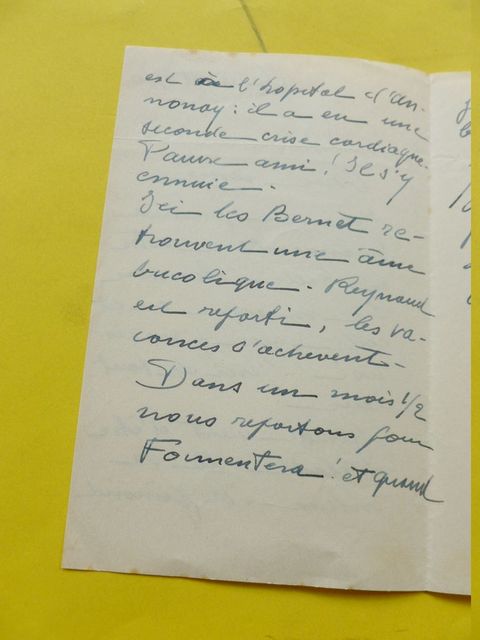 est à l'hopital d'An-
nonay : il a eu une
seconde crise cardiaque.
Pauvre ami ! Il s'y
ennuie.
Ici les Bernet re-
trouvent une âme
bucolique. Reynaud
est reparti, les va-
cances s'achevent.
Dans un mois 1/2
nous repartons pour
Formentera ! et quand